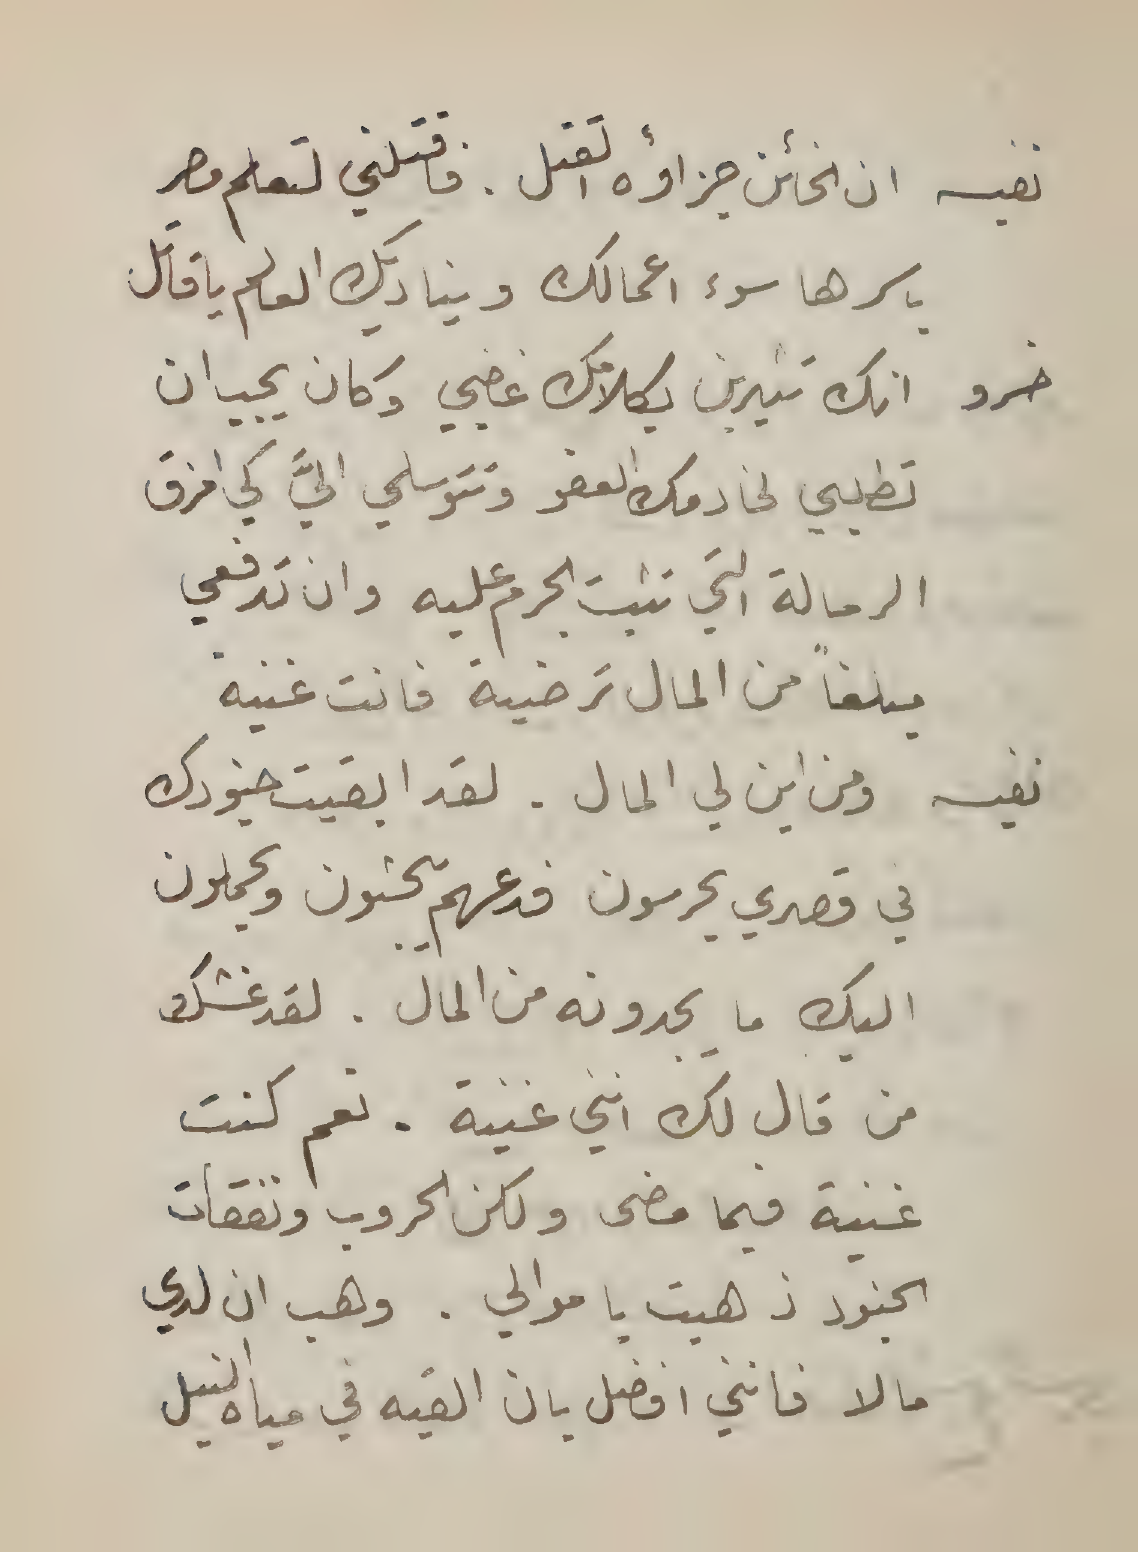 نفيسه ان الخائن جزاؤه القتل . فاقتلني لتعلم مصر
باسرها سوء اعمالك ويناديك العالم يا قاتل
خسرو انك تثيرين بكلامك غضبي وكان يجب ان
تطلبي لخادمك العفو وتتوسلي اليَّ كي امزق
الرسالة التي تثبت الجرم عليه وان تدفعي
مبلغاً من المال ترضية فانت غنية
نفيسه ومن اين لي المال . لقد ابقيت جنودك
في قصري يحرسون فدعهم يبحثون ويحملون
اليك ما يجدونه من المال . لقد غشك
من قال لك انني غنية . نعم كنت
غنية فيما مضى ولكن الحروب ونفقات
الجنود ذهبت باموالي . وهب ان لدي
مالا فانني افضل بان القيه في مياه النيل